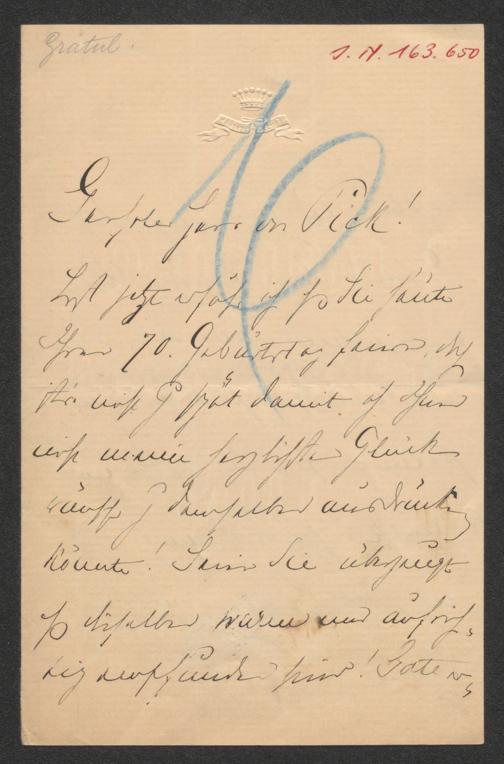 Gratul.
I. N. 163.650
10
Geehrter Herr von Pick!
Erst jetzt erfahre ich daß Sie heute
Ihren 70. Geburtstag feiern, daß
nicht zu spät damit ich Ihnen
noch meine herzlichsten Glück
wünsche zu demselben ausdrücken
könnte! Seien Sie überzeugt
daß dieselben warm und aufrich-
tig empfunden sind! Gott